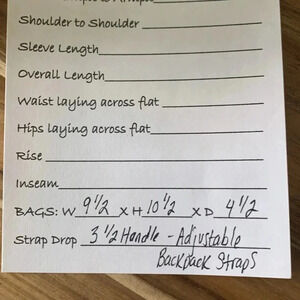 Shoulder to Shoulder
Sleeve Length
Overall Length
Waist laying across flat
Hips laying across flat
Rise
Inseam
BAGS: W 9 1/2 X H 10 1/2 X D 4 1/2
Strap Drop 3 1/2 Handle - Adjustable
Backpack Straps